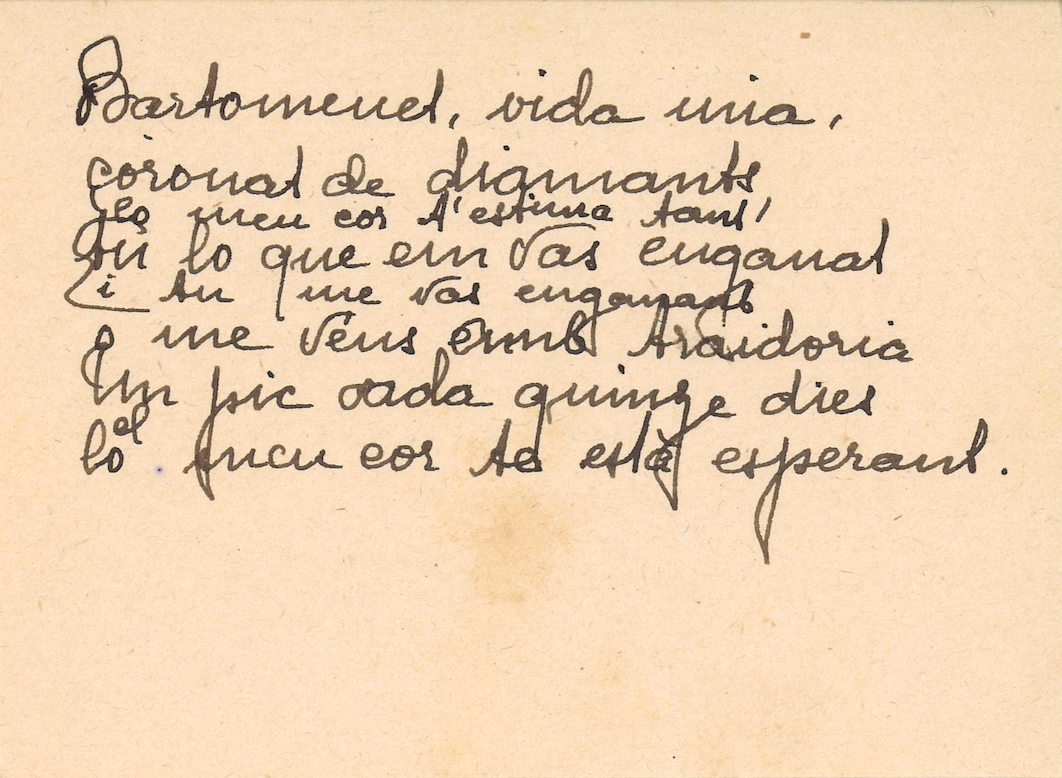 Bartomeuet, vida mia,
coronat de diamants
lo meu cor t'estima tant
si lo que em vas enganat
i tu me vas enganant
o me véns amb traidoria
Un pic cada quinze dies
el
lo meu cor te està esperant.